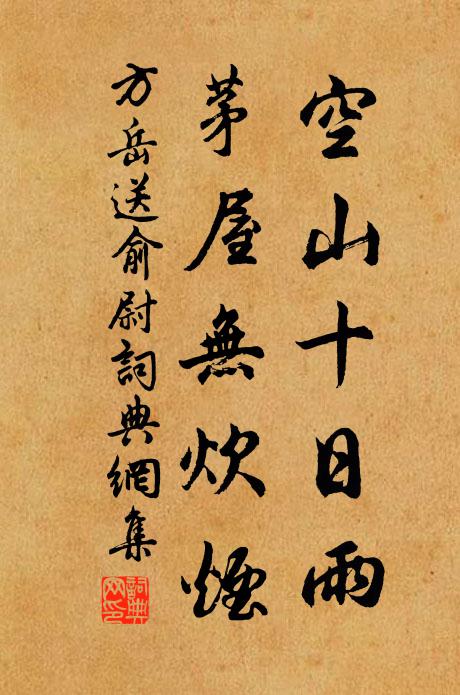 空山十日雨
茅屋無炊煙
方岳送俞尉詞典網集
詞典网印